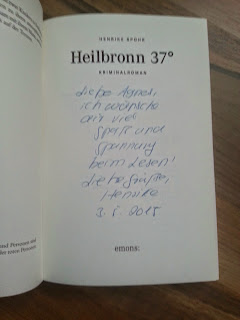 HENRIKE SPOHR
Heilbronn 37°
KRIMINALROMAN
Liebe Agnes,
ich wünsche
dir viel
Spaß und
Spannung
beim Lesen!
Liebe Grüße,
Henrike
3. 5. 2015
emons: